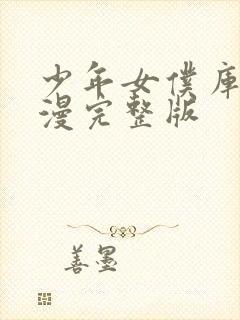 少年女僕庫
漫完整版
善墨